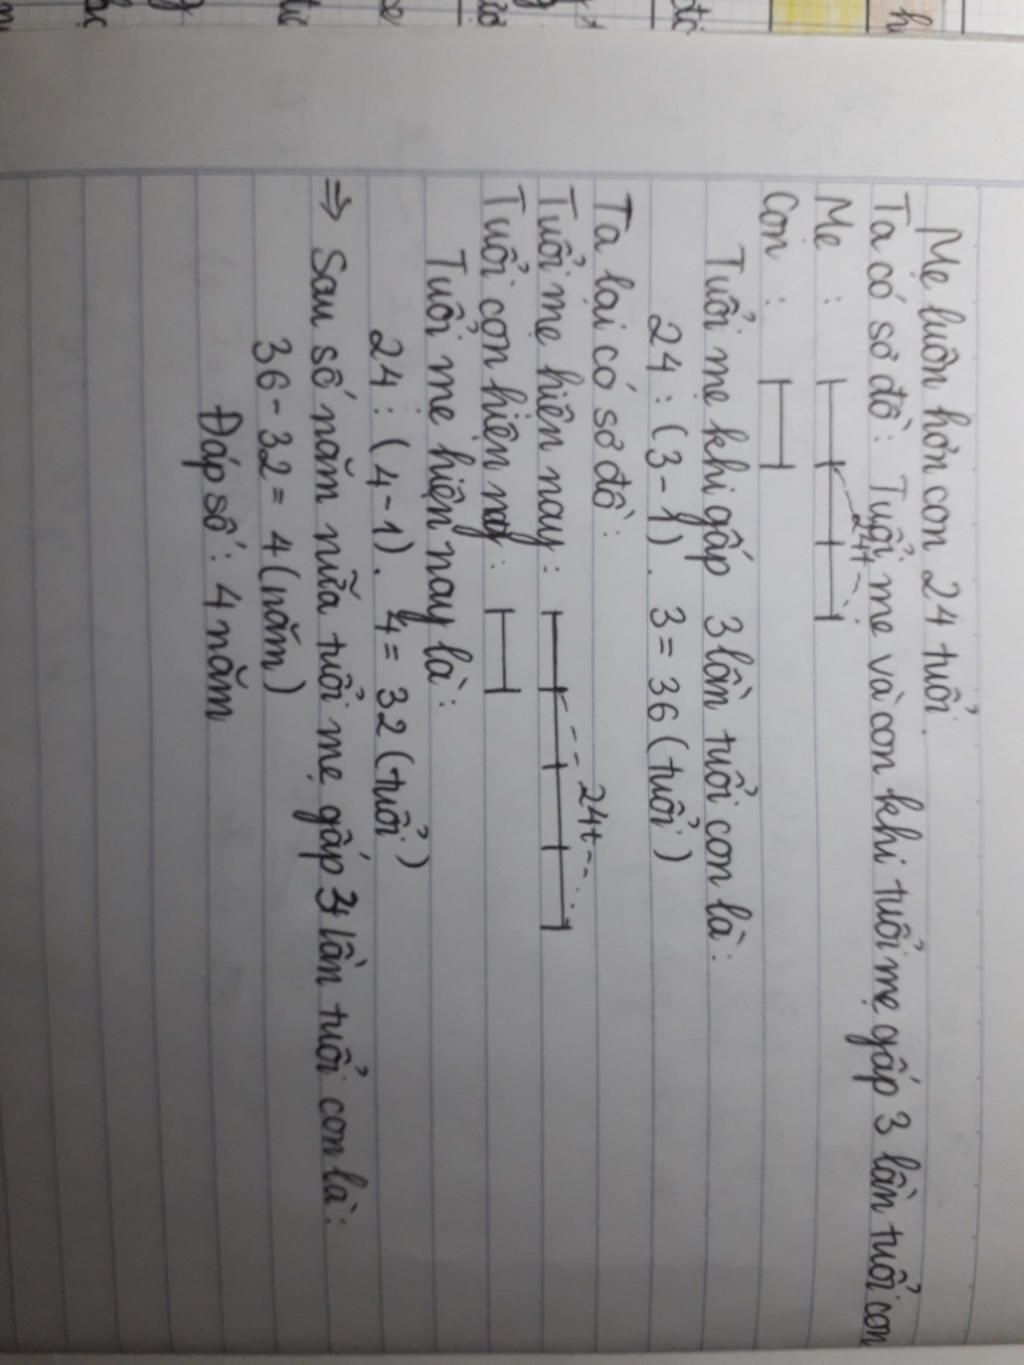 Mẹ luôn hơn con 24 tuổi.
Ta có sơ đồ: Tuổi mẹ và con khi tuổi mẹ gấp 3 lần tuổi con
24t
Mẹ :
Con :
Tuổi mẹ khi gấp 3 lần tuổi con là:
24 : (3-1) . 3 = 36 (tuổi)
Ta lại có sơ đồ:
24t
Tuổi mẹ hiện nay:
Tuổi con hiện nay:
Tuổi mẹ hiện nay là:
24 : (4-1). 4 = 32 (tuổi)
⇒ Sau số năm nữa tuổi mẹ gấp 3 lần tuổi con là:
36 - 32 = 4 (năm)
Đáp số: 4 năm